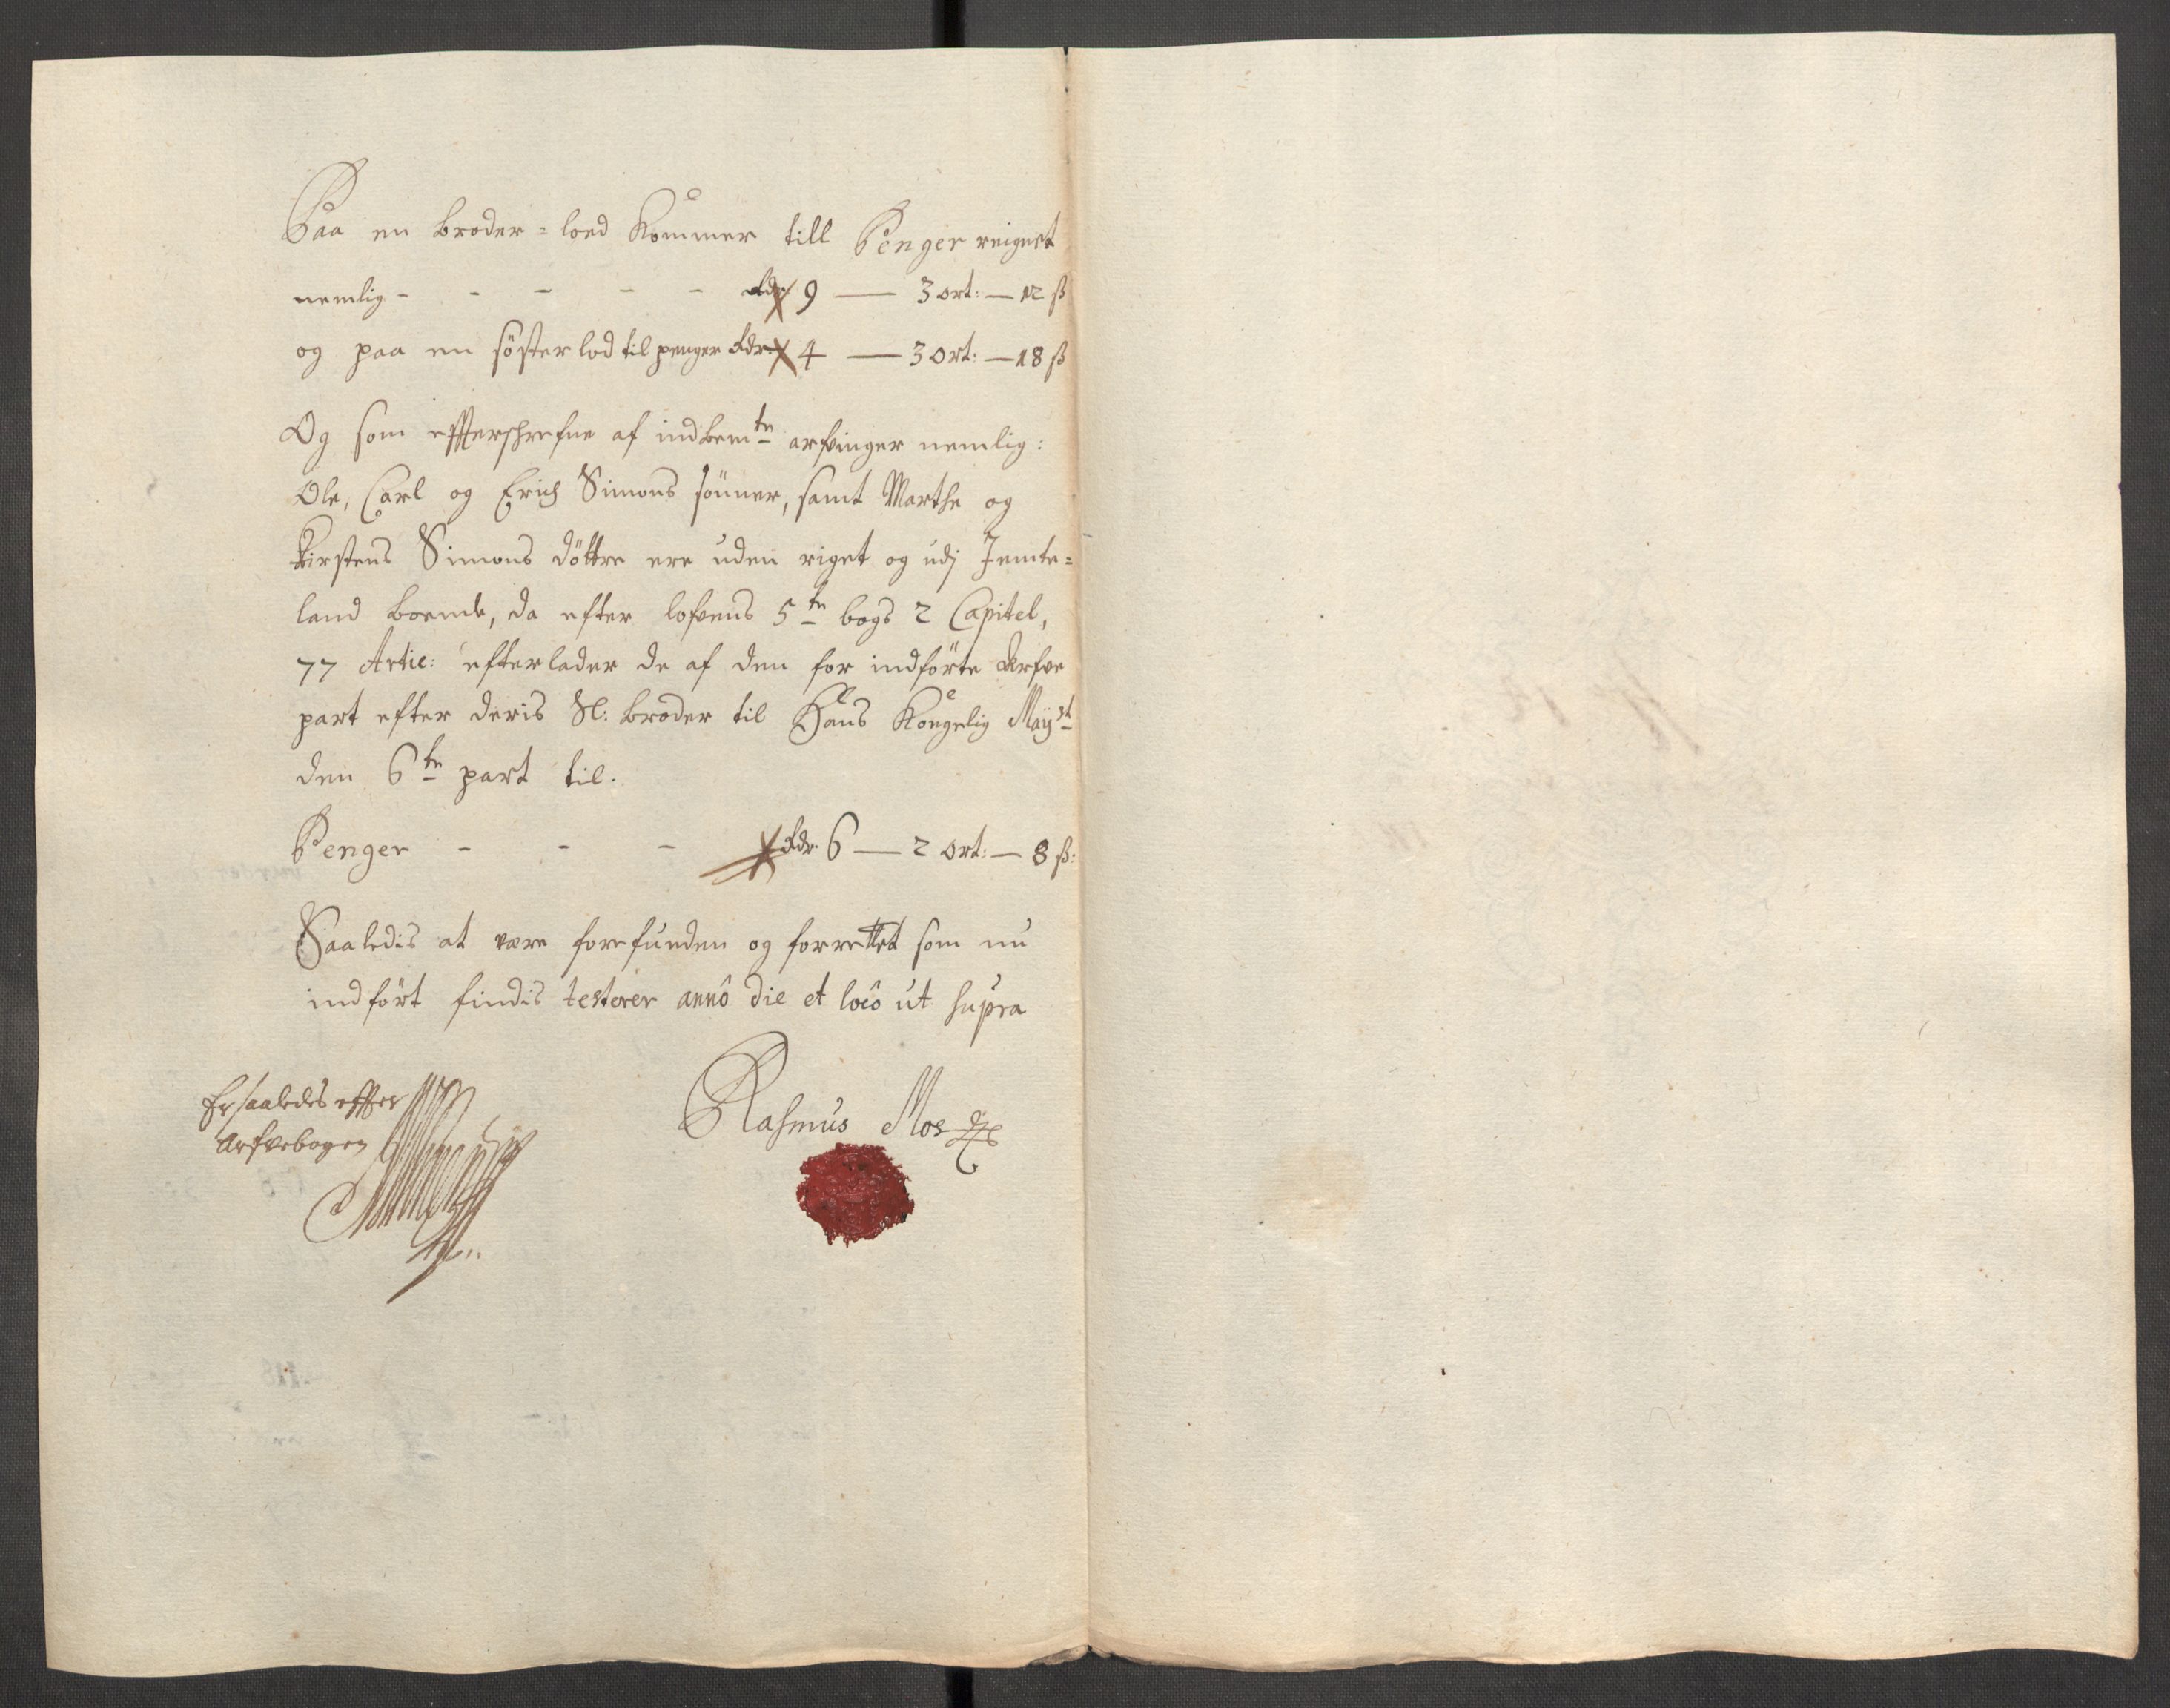 Paa en broder=loed kommer till Penger reignet
nemlig - - - - - rdr 9 — 3 ort: — 12 ß
og paa en söster lod til penger rdr 4 — 3 Ort: — 18 ß
Og som effterschrefne af indbemte arfvinger nemlig:
Ole, Carl og Erich Simons sönner, samt Marthe og
Kirstens Simons döttre ere uden riget og udj Jemte=
land boende, da efter lofvens 5te bogs 2 Capitel,
77 Artic: efterlader de af den for indförte Arfve
part efter deris Sl: broder til Hans Kongelig Mayst
den 6te part til.
Penger - - - rdr. 6 — 2 ort: — 8 ß:
Saaledis at være forefunden og forrettet som nu
indfört findis testerer anno die et loco ut supra
Er saaledes effter
Arfvebogen
Rasmus Mos